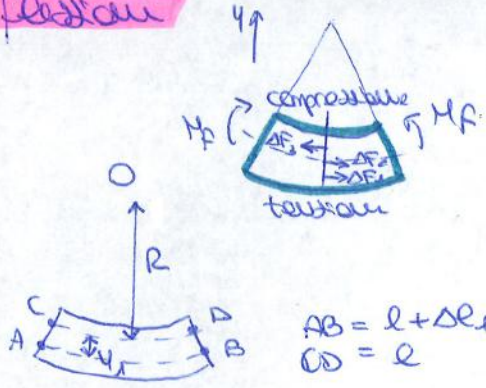 flessione
y
compressione
M_F M_F
ΔF_3
ΔF_2
ΔF_1
tensione
O
R
C D
A y_1 B
AB = l + Δl_1
CD = l